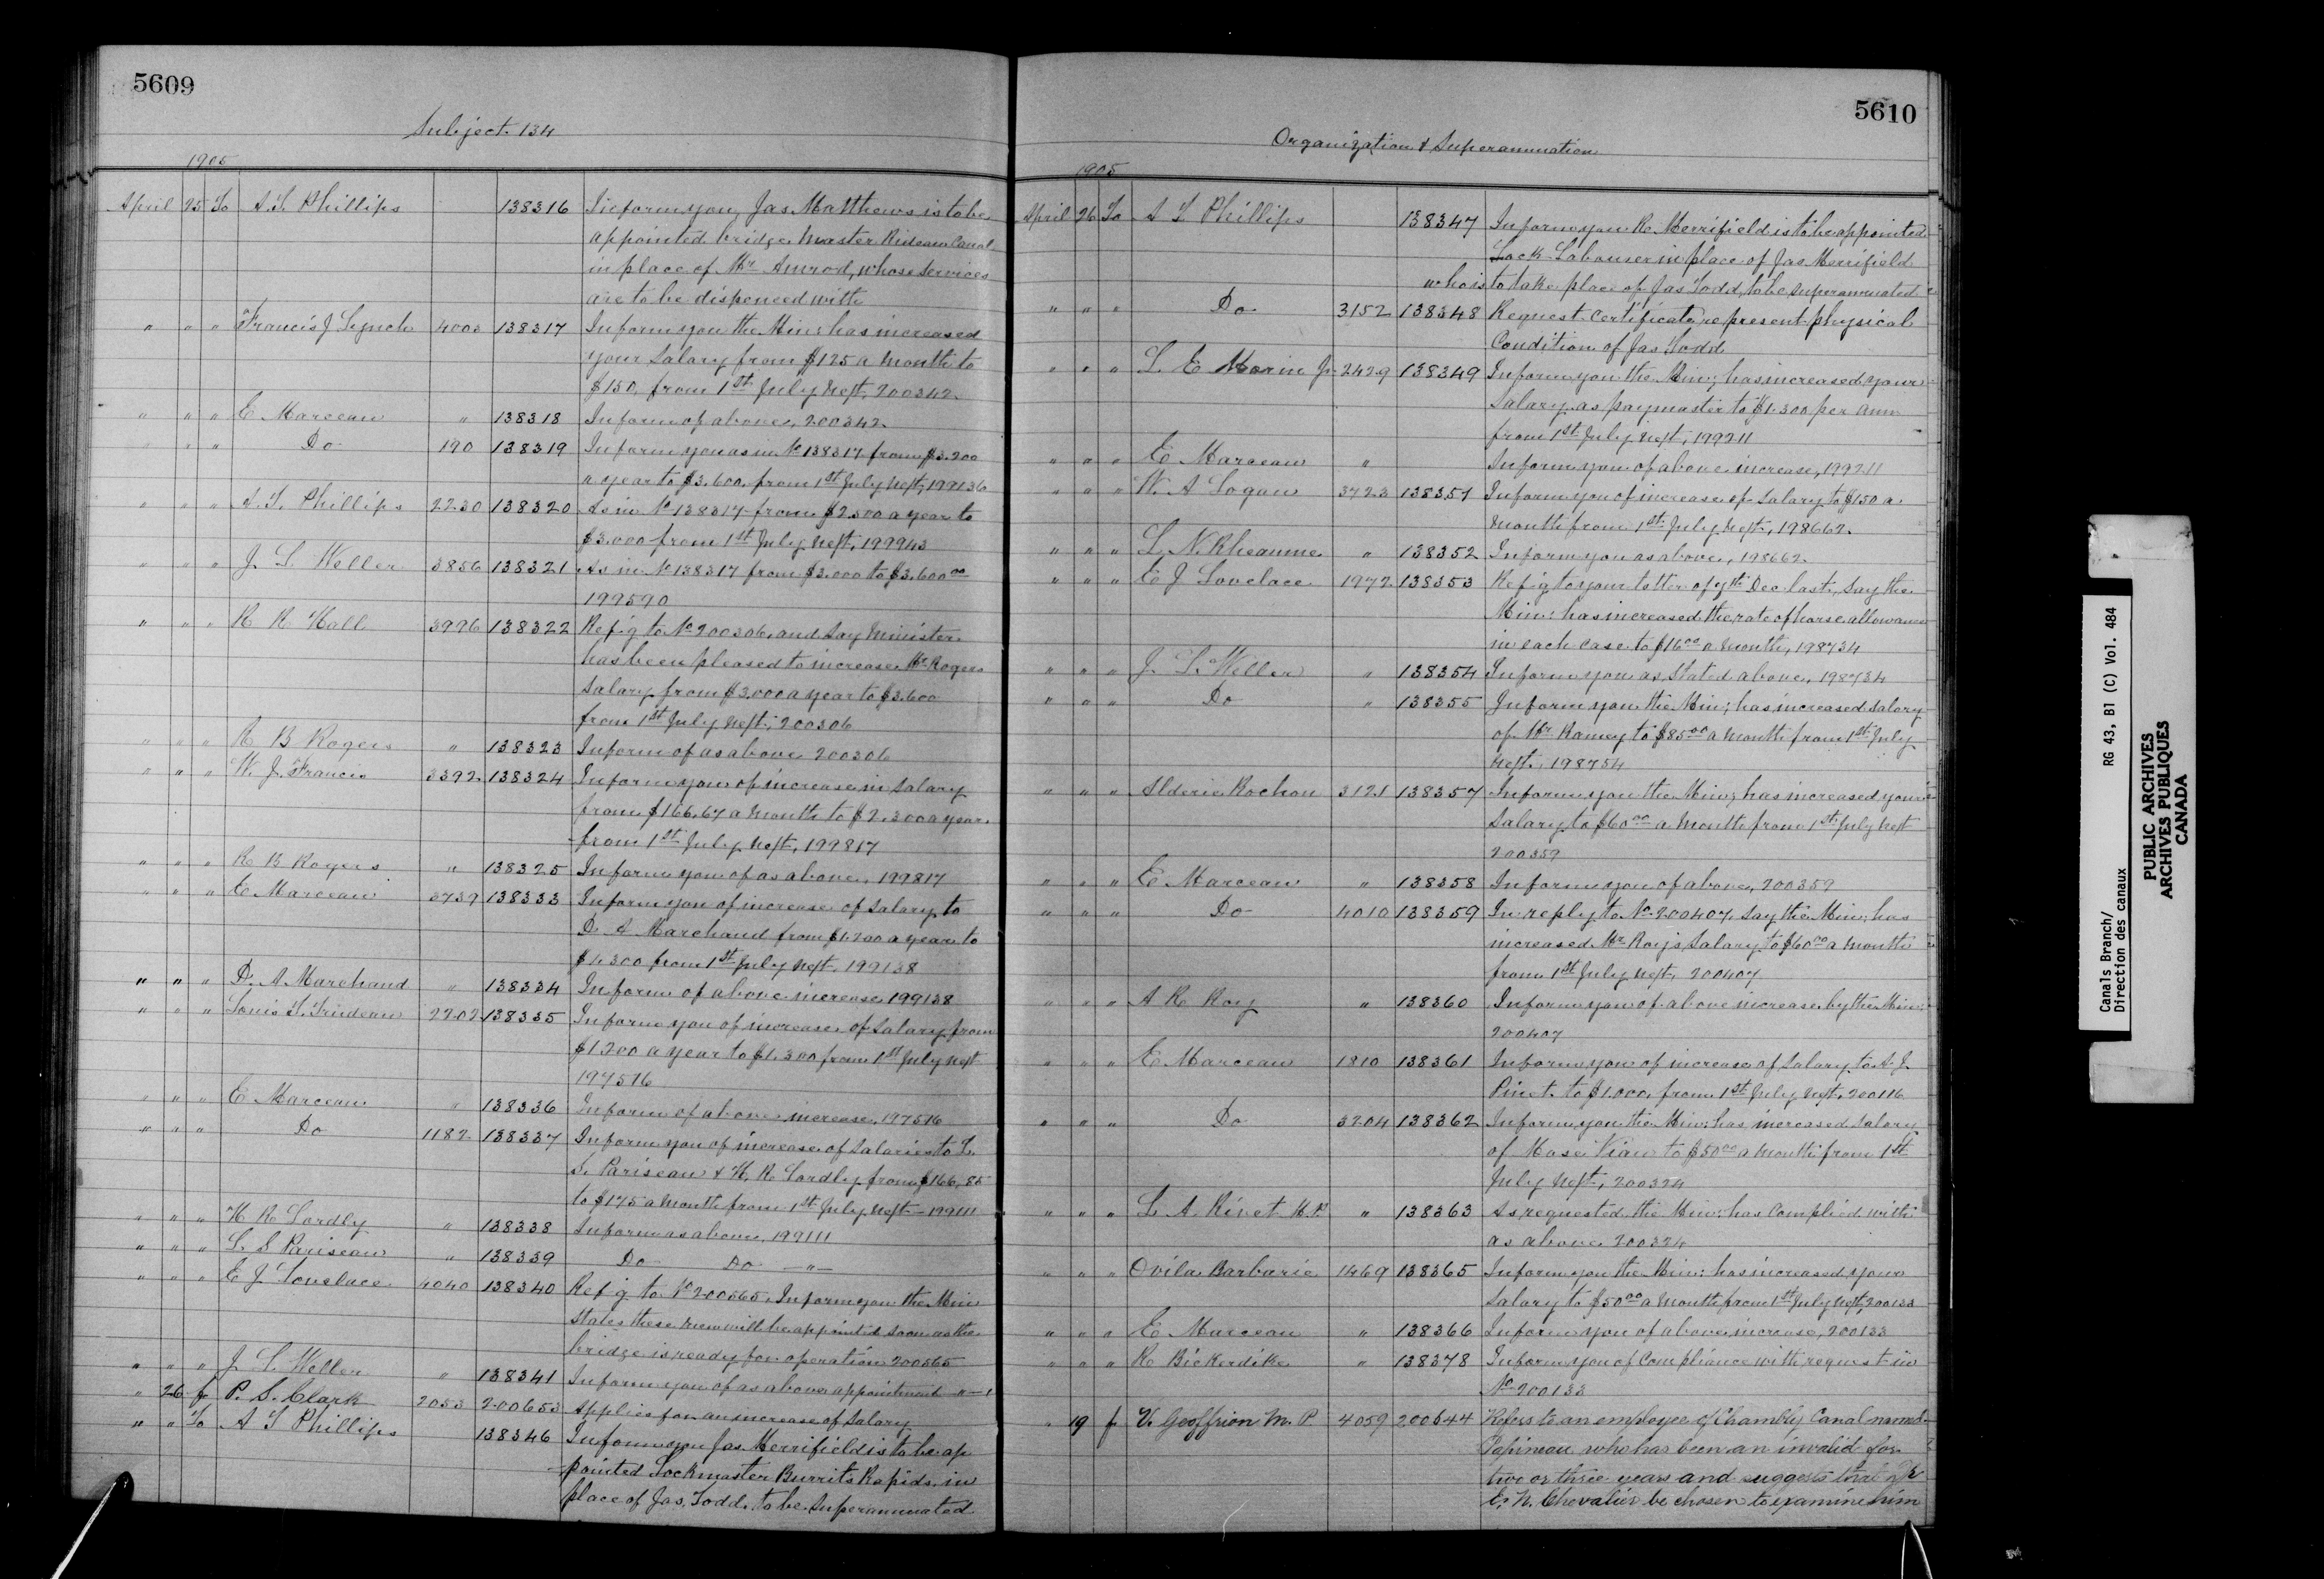 5609
Subject 134
1905
April 25 To A. T. Phillips 138316 Inform you Jas. Matthews is to be
appointed bridge Master Rideau Canal
in place of Mr Amrod, whose services
are to be dispenced with
" " " Francis J Lynch 4003 138317 Inform you the Min: has increased
your salary from $125 a month to
$150, from 1st July next, 200342
" " " E Marceau " 138318 Inform of above, 200342
" " " Do 190 138319 Inform you as in No 138317 from $3.200
a year to $3.600, from 1st July next, 199136
" " " A. T. Phillips 2230 138320 As in No 138317 from $2.500 a year to
$3.000 from 1st July next, 199943
" " " J L Weller 3856 138321 As in No 138317 from $3.000 to $3.600 00
199590
" " " R R Hall 3996 138322 Ref'g to No 200306, and say Minister
has been pleased to increase Mr Rogers
salary from $3.000 a year to $3.600
from 1st July next, 200306
" " " R B Rogers " 138323 Inform of as above 200306
" " " W. J. Francis 3392 138324 Inform you of increase in salary
from $166.67 a month to $2.300 a year
from 1st July next, 199817
" " " R B Rogers " 138325 Inform you of as above, 199817
" " " E Marceau 3739 138333 Inform you of increase of salary to
D. A Marchand from $1.200 a year to
$1.300 from 1st July next, 199138
" " " D. A Marchand " 138334 Inform of above increase 199138
" " " Louis T. Trudeau 2202 138335 Inform you of increase of salary from
$1.200 a year to $1.300 from 1st July next
197516
" " " E Marceau " 138336 Inform of above increase, 197516
" " " Do 1182 138337 Inform you of increase of salaries to L.
S. Pariseau & H. R. Lordly from $166.85
to $175 a month from 1st July next — 199111
" " " H R Lordly " 138338 Inform as above, 199111
" " " L. S Pariseau " 138339 Do Do — " —
" " " E J Lovelace 4040 138340 Ref'g to No 200565, Inform you the Min
states these men will be appointed soon as the
bridge is ready for operation 200565
" " " J. L Weller " 138341 Inform you of as above appointment — " —
" 26 f P. S. Clark 2053 200653 Applies for an increase of salary
" " To A T Phillips 138346 Inform you Jas. Merrifield is to be ap
pointed Lockmaster Burrits Rapids, in
place of Jas. Todd, to be superannuated
5610
Organization & Superannuation
1905
April 26 To A T Phillips 138347 Inform you R. Merrifield is to be appointed
Lock-Labourer in place of Jas Merrifield
who is to take place of Jas Todd, to be superannuated
" " " Do 3152 138348 Request Certificate re present physical
Condition of Jas Todd
" " " L E Morin Jr 2429 138349 Inform you the Min; has increased your
salary as paymaster to $1.300 per ann
from 1st July next, 199211
" " " E Marceau " Inform you of above increase, 199211
" " " W. A Logan 3723 138351 Inform you of increase of salary to $150 a
month from 1st July next, 198662
" " " L. N. Rheaume " 138352 Inform you as above, 198662
" " " E J Lovelace 1972 138353 Ref'g to your letter of 7th Dec last, say the
Min: has increased the rate of horse allowance
in each case to $16 00 a month, 198734
" " " J. L. Weller " 138354 Inform you as stated above, 198734
" " " Do " 138355 Inform you the Min; has increased salary
of Mr Ramey to $85 00 a month from 1st July
next, 198754
" " " Alderic Rochon 3121 138357 Inform you the Min; has increased your
salary to $60 00 a month from 1st July next
200359
" " " E Marceau " 138358 Inform you of above, 200359
" " " Do 4010 138359 In reply to No 200407, say the Min: has
increased Mr Roy's salary to $60 00 a month
from 1st July next, 200407
" " " A R Roy " 138360 Inform you of above increase by the Min:
200407
" " " E Marceau 1810 138361 Inform you of increase of salary to A. J.
Pinet to $1.000, from 1st July next, 200116
" " " Do 3204 138362 Inform you the Min: has increased salary
of Mose Viau to $50 00 a month from 1st
July next, 200324
" " " L. A. Rivet M.P " 138363 As requested the Min: has complied with
as above 200324
" " " Ovila Barbarie 1469 138365 Inform you the Min: has increased your
salary to $50 00 a month from 1st July next, 200133
" " " E Marceau " 138366 Inform you of above increase, 200133
" " " R Bickerdike " 138378 Inform you of compliance with request in
No 200133
" 19 f V. Geoffrion M. P 4059 200644 Refers to an employee of Chambly Canal named
Papineau who has been an invalid for
two or three years and suggests that Dr
E. N. Chevalier be chosen to examine him
Canals Branch/ RG 43, B1 (C) Vol. 484
Direction des canaux
PUBLIC ARCHIVES
ARCHIVES PUBLIQUES
CANADA